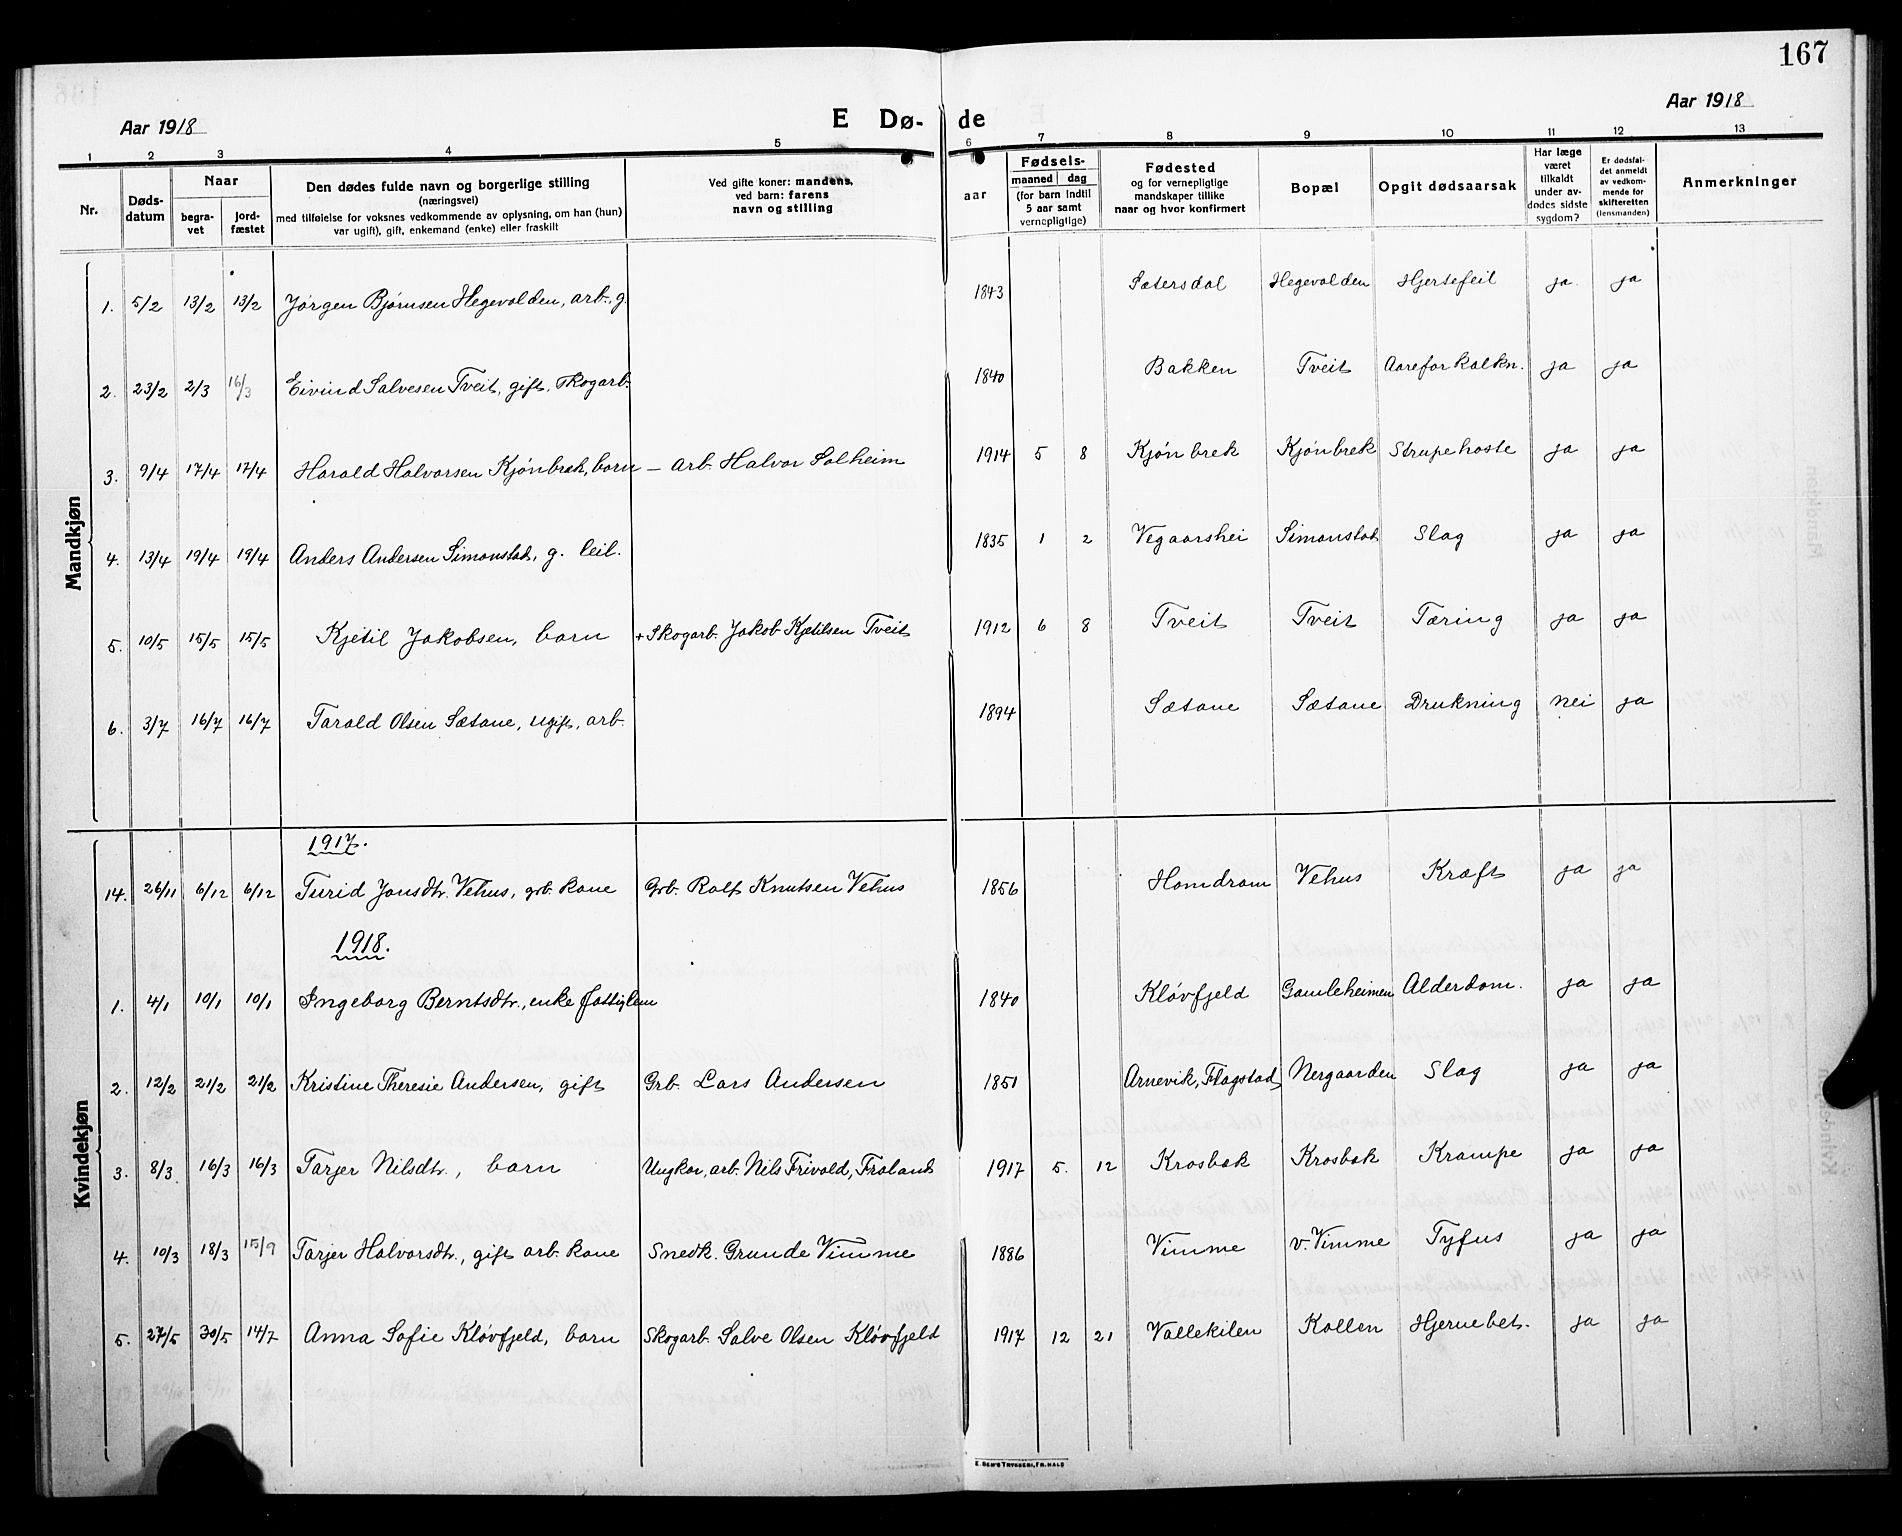 167
Aar 1918
E Dø-de
Aar 1918
1 2 3 4 5 6 7 8 9 10 11 12 13
Nr.
Døds-datum
Naar
begra-vet
jord-fæstet
Den dødes fulde navn og borgerlige stilling
(næringsvei)
med tilføielse for voksnes vedkommende av oplysning, om han (hun)
var ugift), gift, enkemand (enke) eller fraskilt
Ved gifte koner: mandens,
ved barn: farens
navn og stilling
aar
Fødsels-
maaned dag
(for barn indtil
5 aar samt
vernepligtige)
Fødested
og for vernepligtige
mandskaper tillike
naar og hvor konfirmert
Bopæl
Opgit dødsaarsak
Har læge
været
tilkaldt
under av-
dødes sidste
sygdom?
Er dødsfal-
det anmeldt
av vedkom-
mende for
skifteretten
(lensmanden)
Anmerkninger
Mandkjøn
1. 5/2 13/2 13/2 Jørgen Bjørnsen Hegevolden, arb., g. 1843 Sætersdal Hegevolden Hjertefeil ja ja
2. 23/2 2/3 16/3 Eivind Salvesen Tveit, gift, skogarb. 1840 Bakken Tveit Aareforkalkn. ja ja
3. 9/4 17/4 17/4 Harald Halvorsen Kjønbrek, barn – arb. Halvor Solheim 1914 5 8 Kjønbrek Kjønbrek Strupehoste ja ja
4. 13/4 19/4 19/4 Anders Andersen Simonstad, g. leil. 1835 1 2 Vegaarshei Simonstad Slag ja ja
5. 10/5 15/5 15/5 Kjetil Jakobsen, barn + Skogarb. Jakob Kjetilsen Tveit 1912 6 8 Tveit Tveit Tæring ja ja
6. 3/7 16/7 16/7 Tarald Olsen Sætane, ugift, arb. 1894 Sætane Sætane Drukning nei ja
Kvindekjøn
1917.
14. 26/11 6/12 6/12 Turid Jonsdtr. Vehus, grb. kone Grb. Rolf Knutsen Vehus 1856 Homdrom Vehus Kræft ja ja
1918.
1. 4/1 10/1 10/1 Ingeborg Berntsdtr., enke fattiglem 1840 Kløvfjeld Gamleheimen Alderdom. ja ja
2. 12/2 21/2 21/2 Kristine Theresie Andersen, gift Grb. Lars Andersen 1851 Arnevik, Flagstad Nergaarden Slag ja ja
3. 8/3 16/3 16/3 Tarjer Nilsdtr., barn Ungkar, arb. Nils Frivold, Froland 1917 5. 12 Krosbak Krosbak Krampe ja ja
4. 10/3 18/3 15/9 Tarjer Halvorsdtr., gift arb. kone Snedk. Grunde Vimme 1886 Vimme v. Vimme Tyfus ja ja
5. 27/5 30/5 14/7 Anna Sofie Kløvfjeld, barn Skogarb. Salve Olsen Kløvfjeld 1917 12 21 Vallekilen Kollen Hjernebet. ja ja